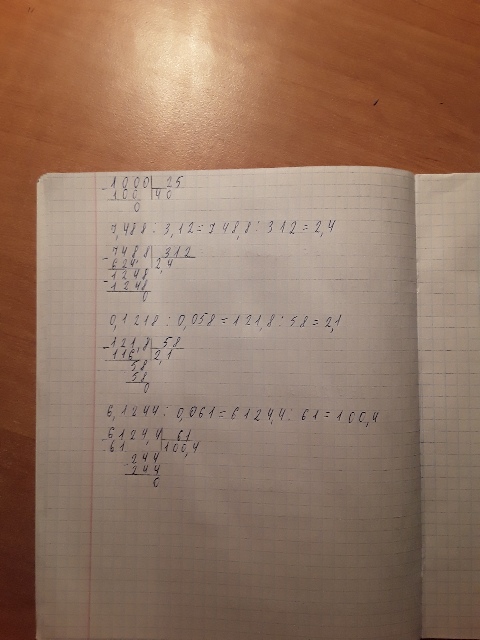 1000 25
100 40
0
7,488 : 3,12 = 748,8 : 312 = 2,4
748 8 312
624 2,4
1248
1248
0
0,1218 : 0,058 = 121,8 : 58 = 2,1
121,8 58
116 2,1
58
58
0
6,1244 : 0,061 = 6124,4 : 61 = 100,4
6124,4 61
61 100,4
244
244
0